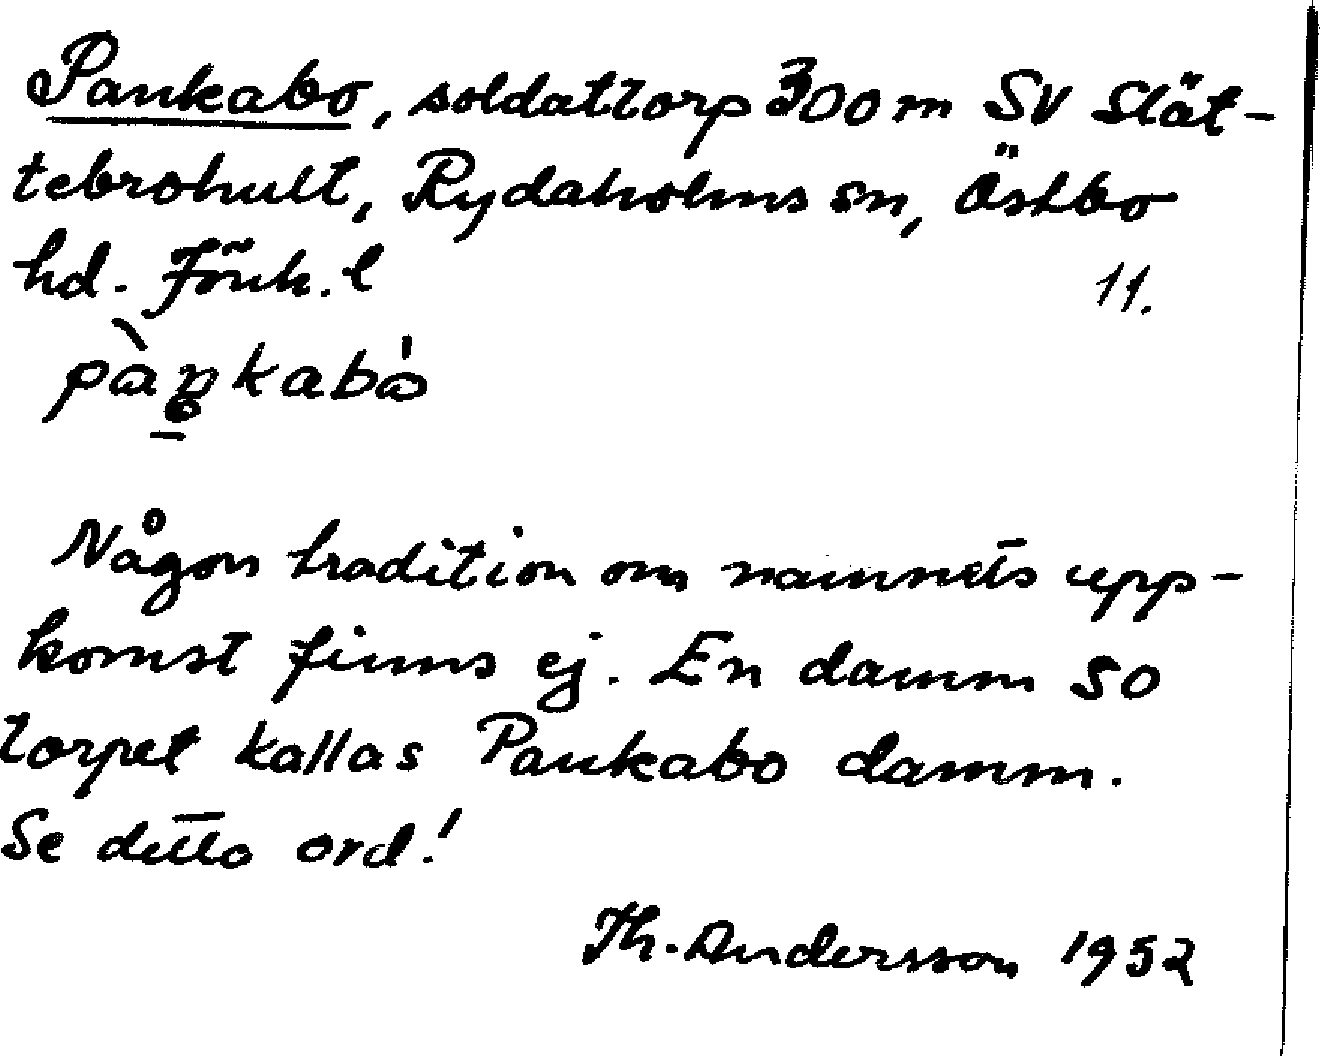 Pankabo, soldattorp 300 m SV Slät-
tebrohult, Rydaholms sn, Östbo
hd. Jönk. l
11.
Någon tradition om namnets upp-
komst finns ej. En damm SO
torpet kallas Pankabo damm.
Se detto ord!
Th. Andersson 1952